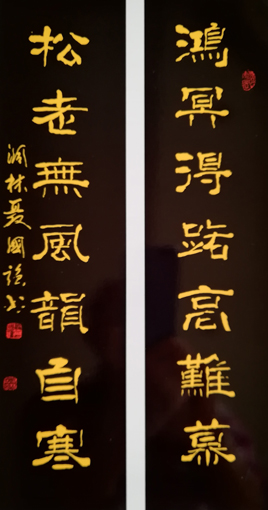 鴻冥得路高難慕
松老無風韻自寒
林夏國